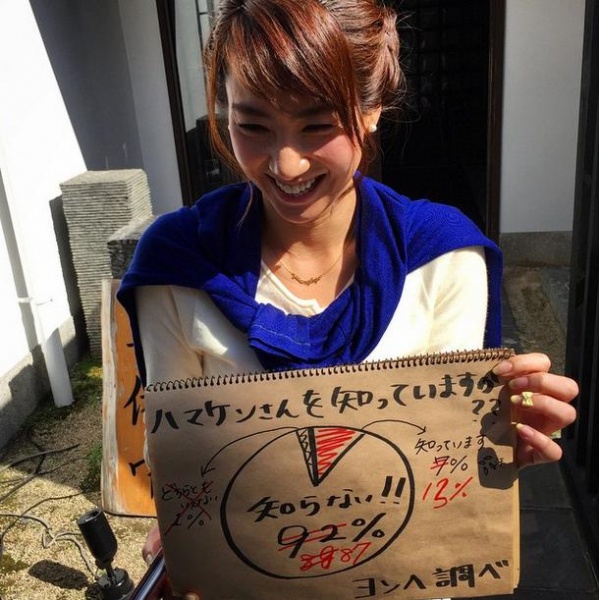 ハマケンさんを知っていますか??
知っています
7%
13%
どちらともいえない
1%
知らない!!
92%
87
ヨンへ調べ